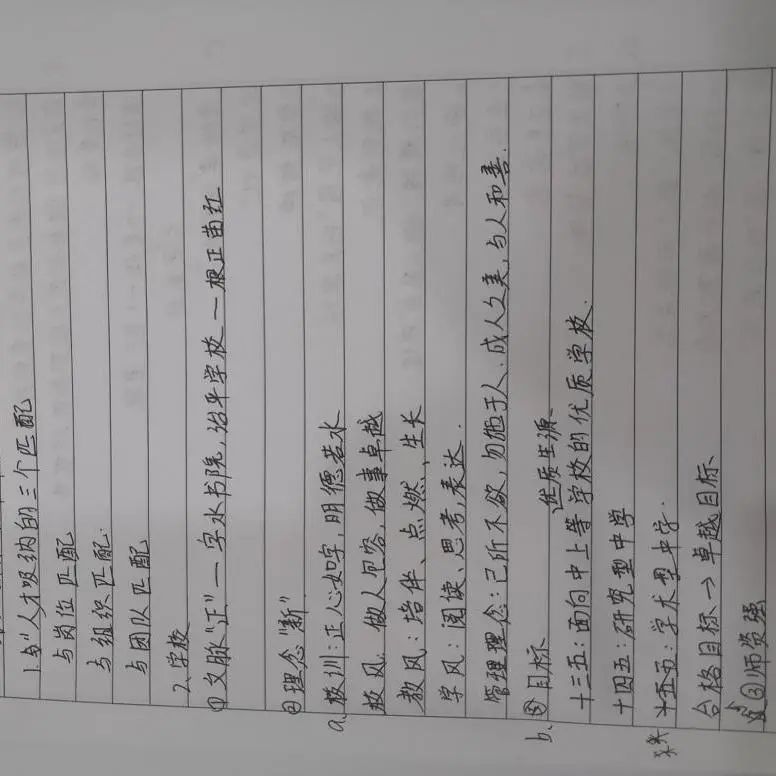 1.与"人才吸纳的三个匹配
与岗位匹配
与组织匹配.
与团队匹配
2.学校
①文脉"正"一字水书院,治平学校一根正苗红
②理念"新"
a、校训:正心如字,明德若水
校风:做人包容,做事卓越
教风:培伴、点燃、生长
学风:阅读、思考、表达.
管理理念:己所不欲,勿施于人.成人之美,与人和善.
b、目标 优质生源
十三五:面向中上等学校的优质学校.
十四五:研究型中学
十五五:学术型中学.
合格目标→卓越目标
③师资强